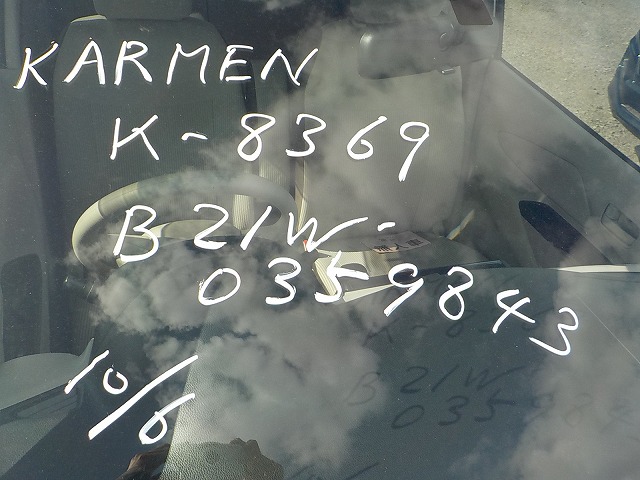 KARMEN
K-8369
B21W-
0359843
10/6